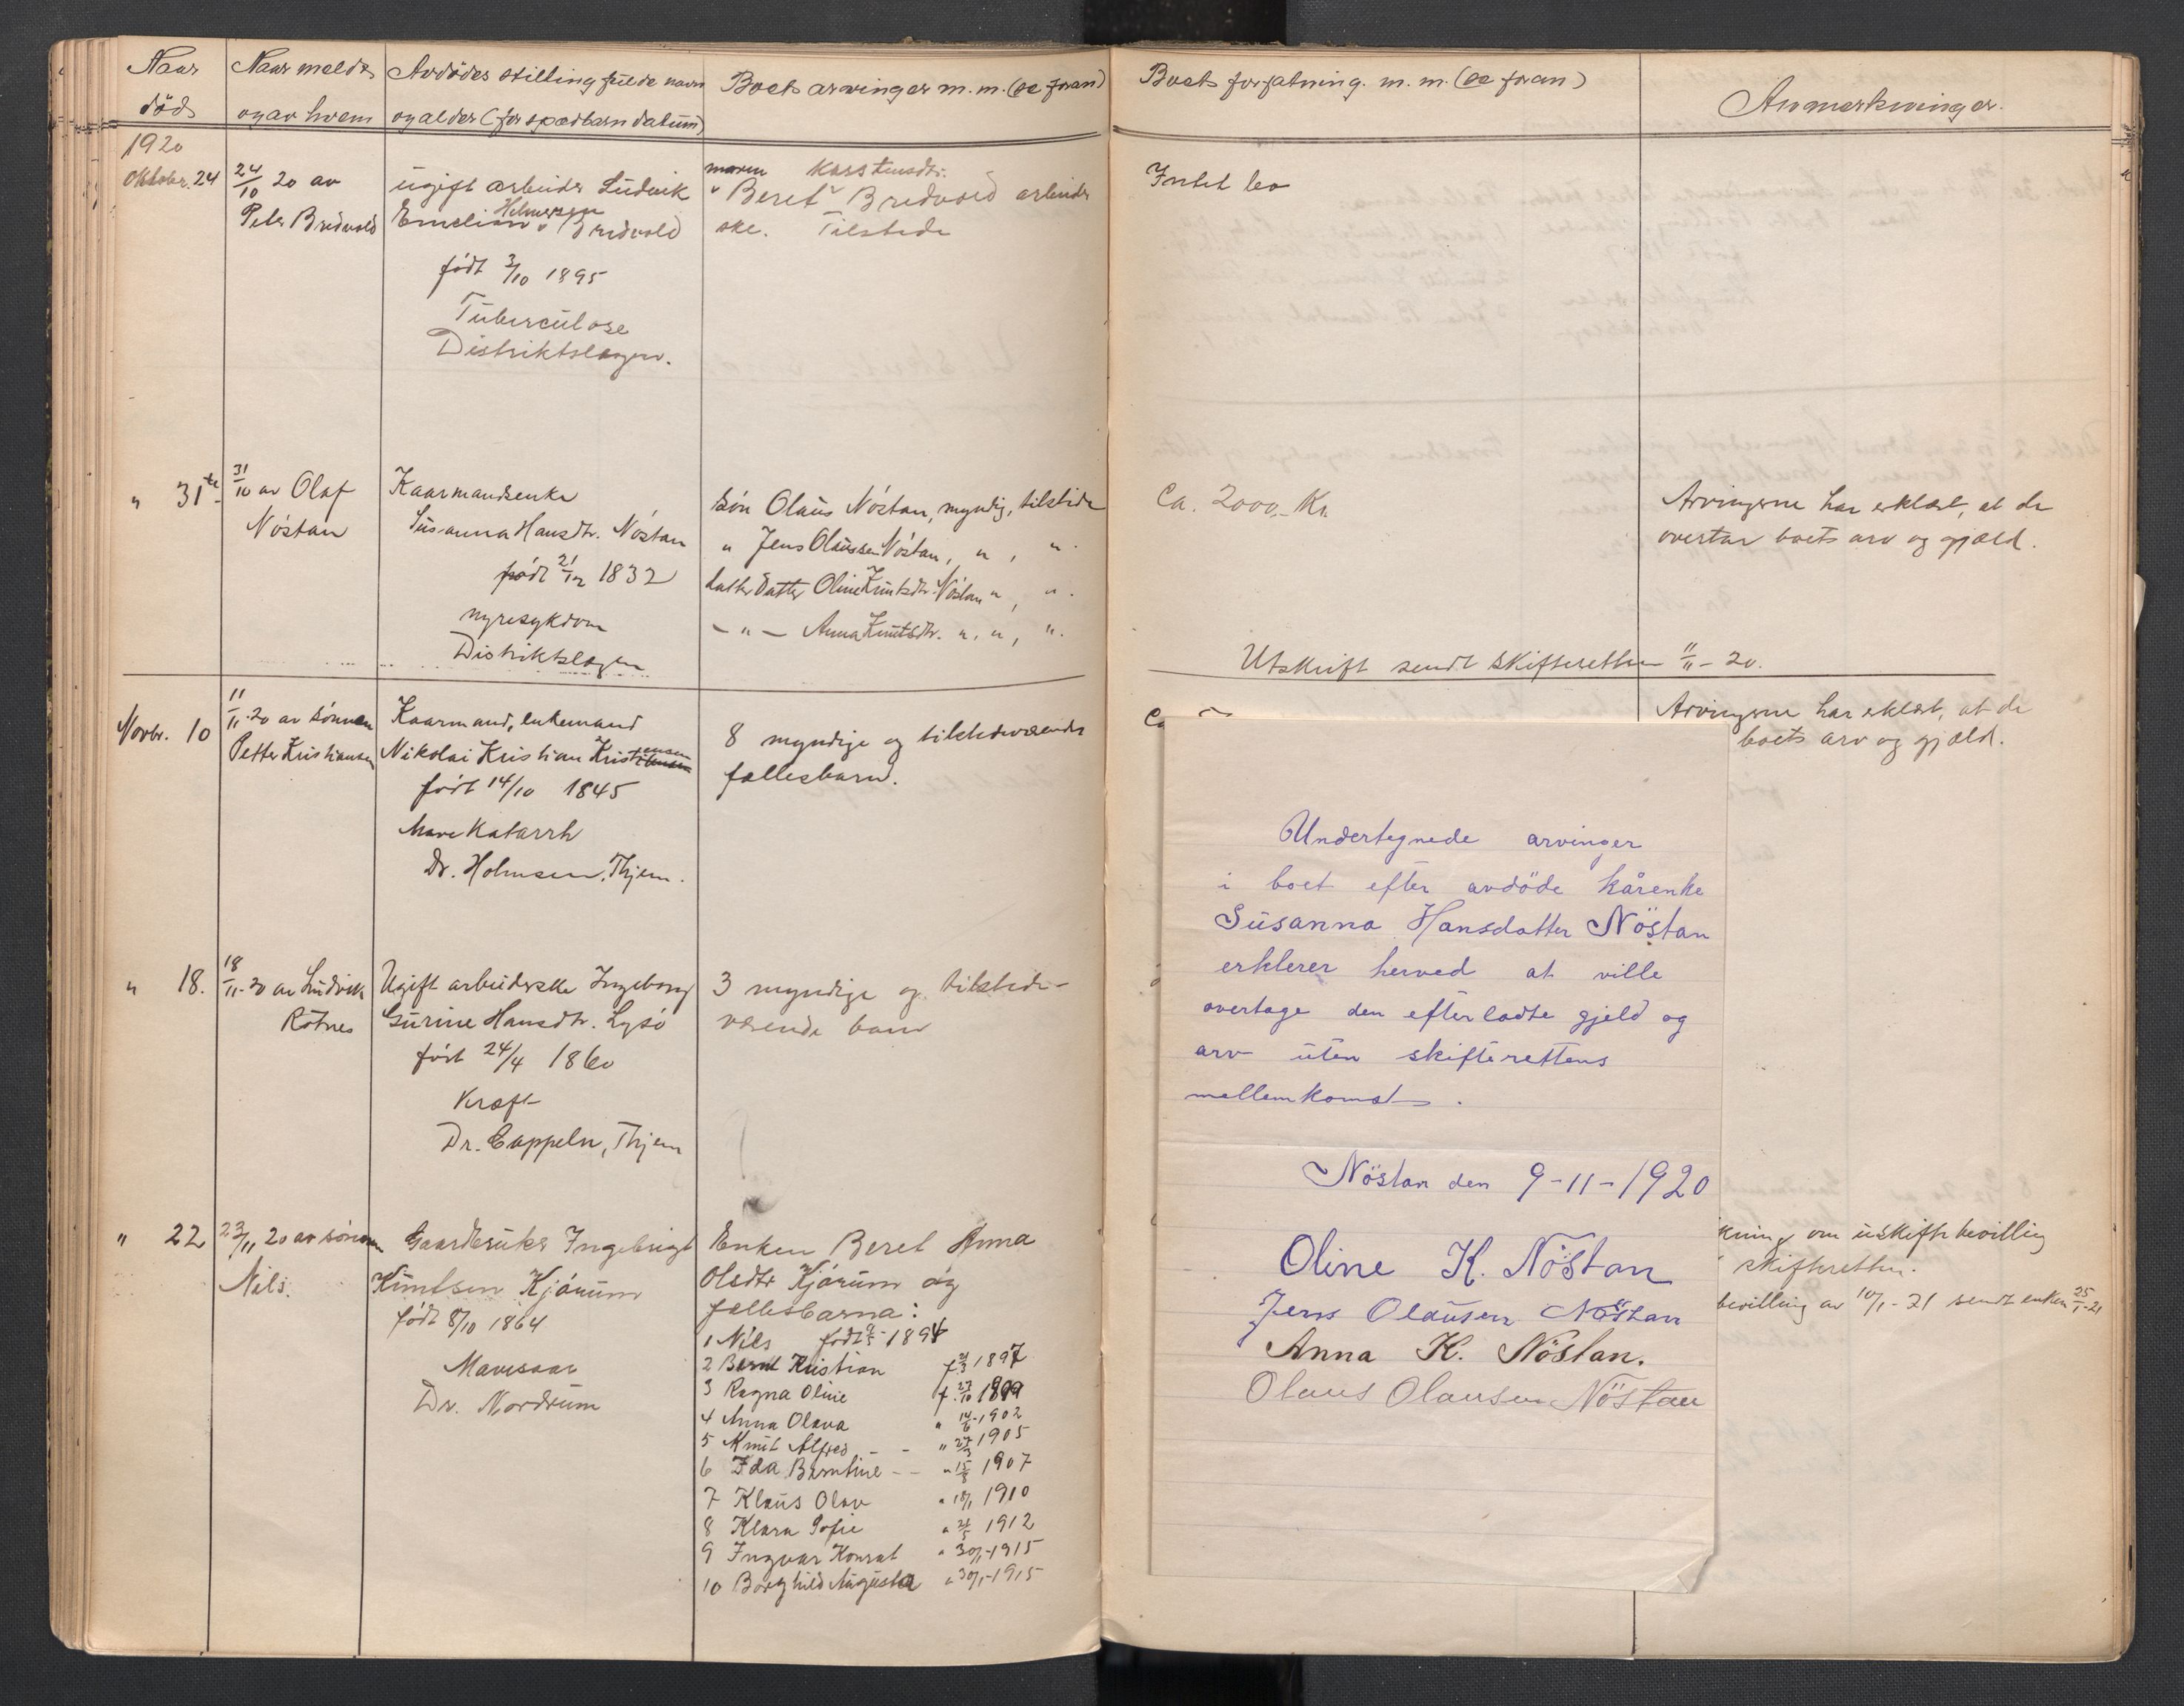 Naar
död
Naar meldt
og av hvem
Avdödes stilling fulde navn
og alder (for spædbarn datum)
Boets arvinger m. m. (se foran)
Boets forfatning. m. m. (se foran)
Anmerkninger.
1920
Oktober. 24
24/10 20 av
Peter Bredvold
ugift arbeider Ludvik
Helmersen
Emelian Bredvold
født 3/10 1895
Tuberculose
Distriktslægen.
moren Karstensdtr.
" Beret Bredvold arbeider
ske. Tilstede
Intet bo
" 31te
31/10 av Olaf
Nöstan
Kaarmandsenke
Susanna Hansdtr. Nöstan
født 21/12 1832
nyresykdom
Distriktslægen
Sön Olaus Nöstan, myndig, tilstede
" Jens Olaussen Nöstan, " , "
datterdatter Oline Knutsdtr. Nöstan " , " .
- " - Anna Knutsdtr. " , " , " .
Ca. 2000,- Kr.
Arvingerne har erklært, at de
overtar boets arv og gjæld.
Utskrift sendt skifteretten 11/11 - 20.
Novbr. 10
11/11-20 av sönnen
Petter Kristiansen
Kaarmand, enkemand
Nikolai Kristian Kristensen
født 14/10 1845
Mave Katarrh
Dr. Holmsen, Thjem.
8 myndige og tilstedeværende
fællesbarn.
Ca
Arvingerne har erklært, at de
boets arv og gjæld.
" 18.
18/11-20 av Ludvik
Rötnes
Ugift arbeiderske Ingeborg
Gurine Hansdtr. Lysö
født 24/4 1860
Kræft
Dr. Cappeln, Thjem
3 myndige og tilstede-
værende barn
" 22
23/11 20 av sönnen
Nils.
Gaardbruker Ingebrigt
Knutsen Kjörum
født 8/10 1864
Mavesaar
Dr. Nordrum
Enken Beret Anna
Olsdtr Kjörum og
fællesbarna:
1 Nils født 9/5 1894
2 Bernt Kristian f. 21/3 1897
3 Ragna Oline f. 27/10 1899
4 Anna Olava " 14/6 - 1902
5 Knut Alfred - - " 27/3 1905
6 Ida Berntine - - " 15/8 1907
7 Klaus Olav " 18/1 1910
8 Klara Sofie " 21/5 1912
9 Ingvar Konrat " 30/1 - 1915
10 Borghild Augusta " 30/1 - 1915
Undertegnede arvinger
i boet efter avdöde kårenke
Susanna Hansdatter Nöstan
erklerer herved at ville
overtage den efterladte gjeld og
arv uten skifterettens
mellemkomst.
Nöstan den 9-11-1920
Oline K. Nöstan
Jens Olausen Nöstan
Anna K. Nöstan.
Olaus Olausen Nöstan
kning om uskiftebevilling
skifteretten.
bevilling av 10/1 - 21 sendt enken 25/1-21